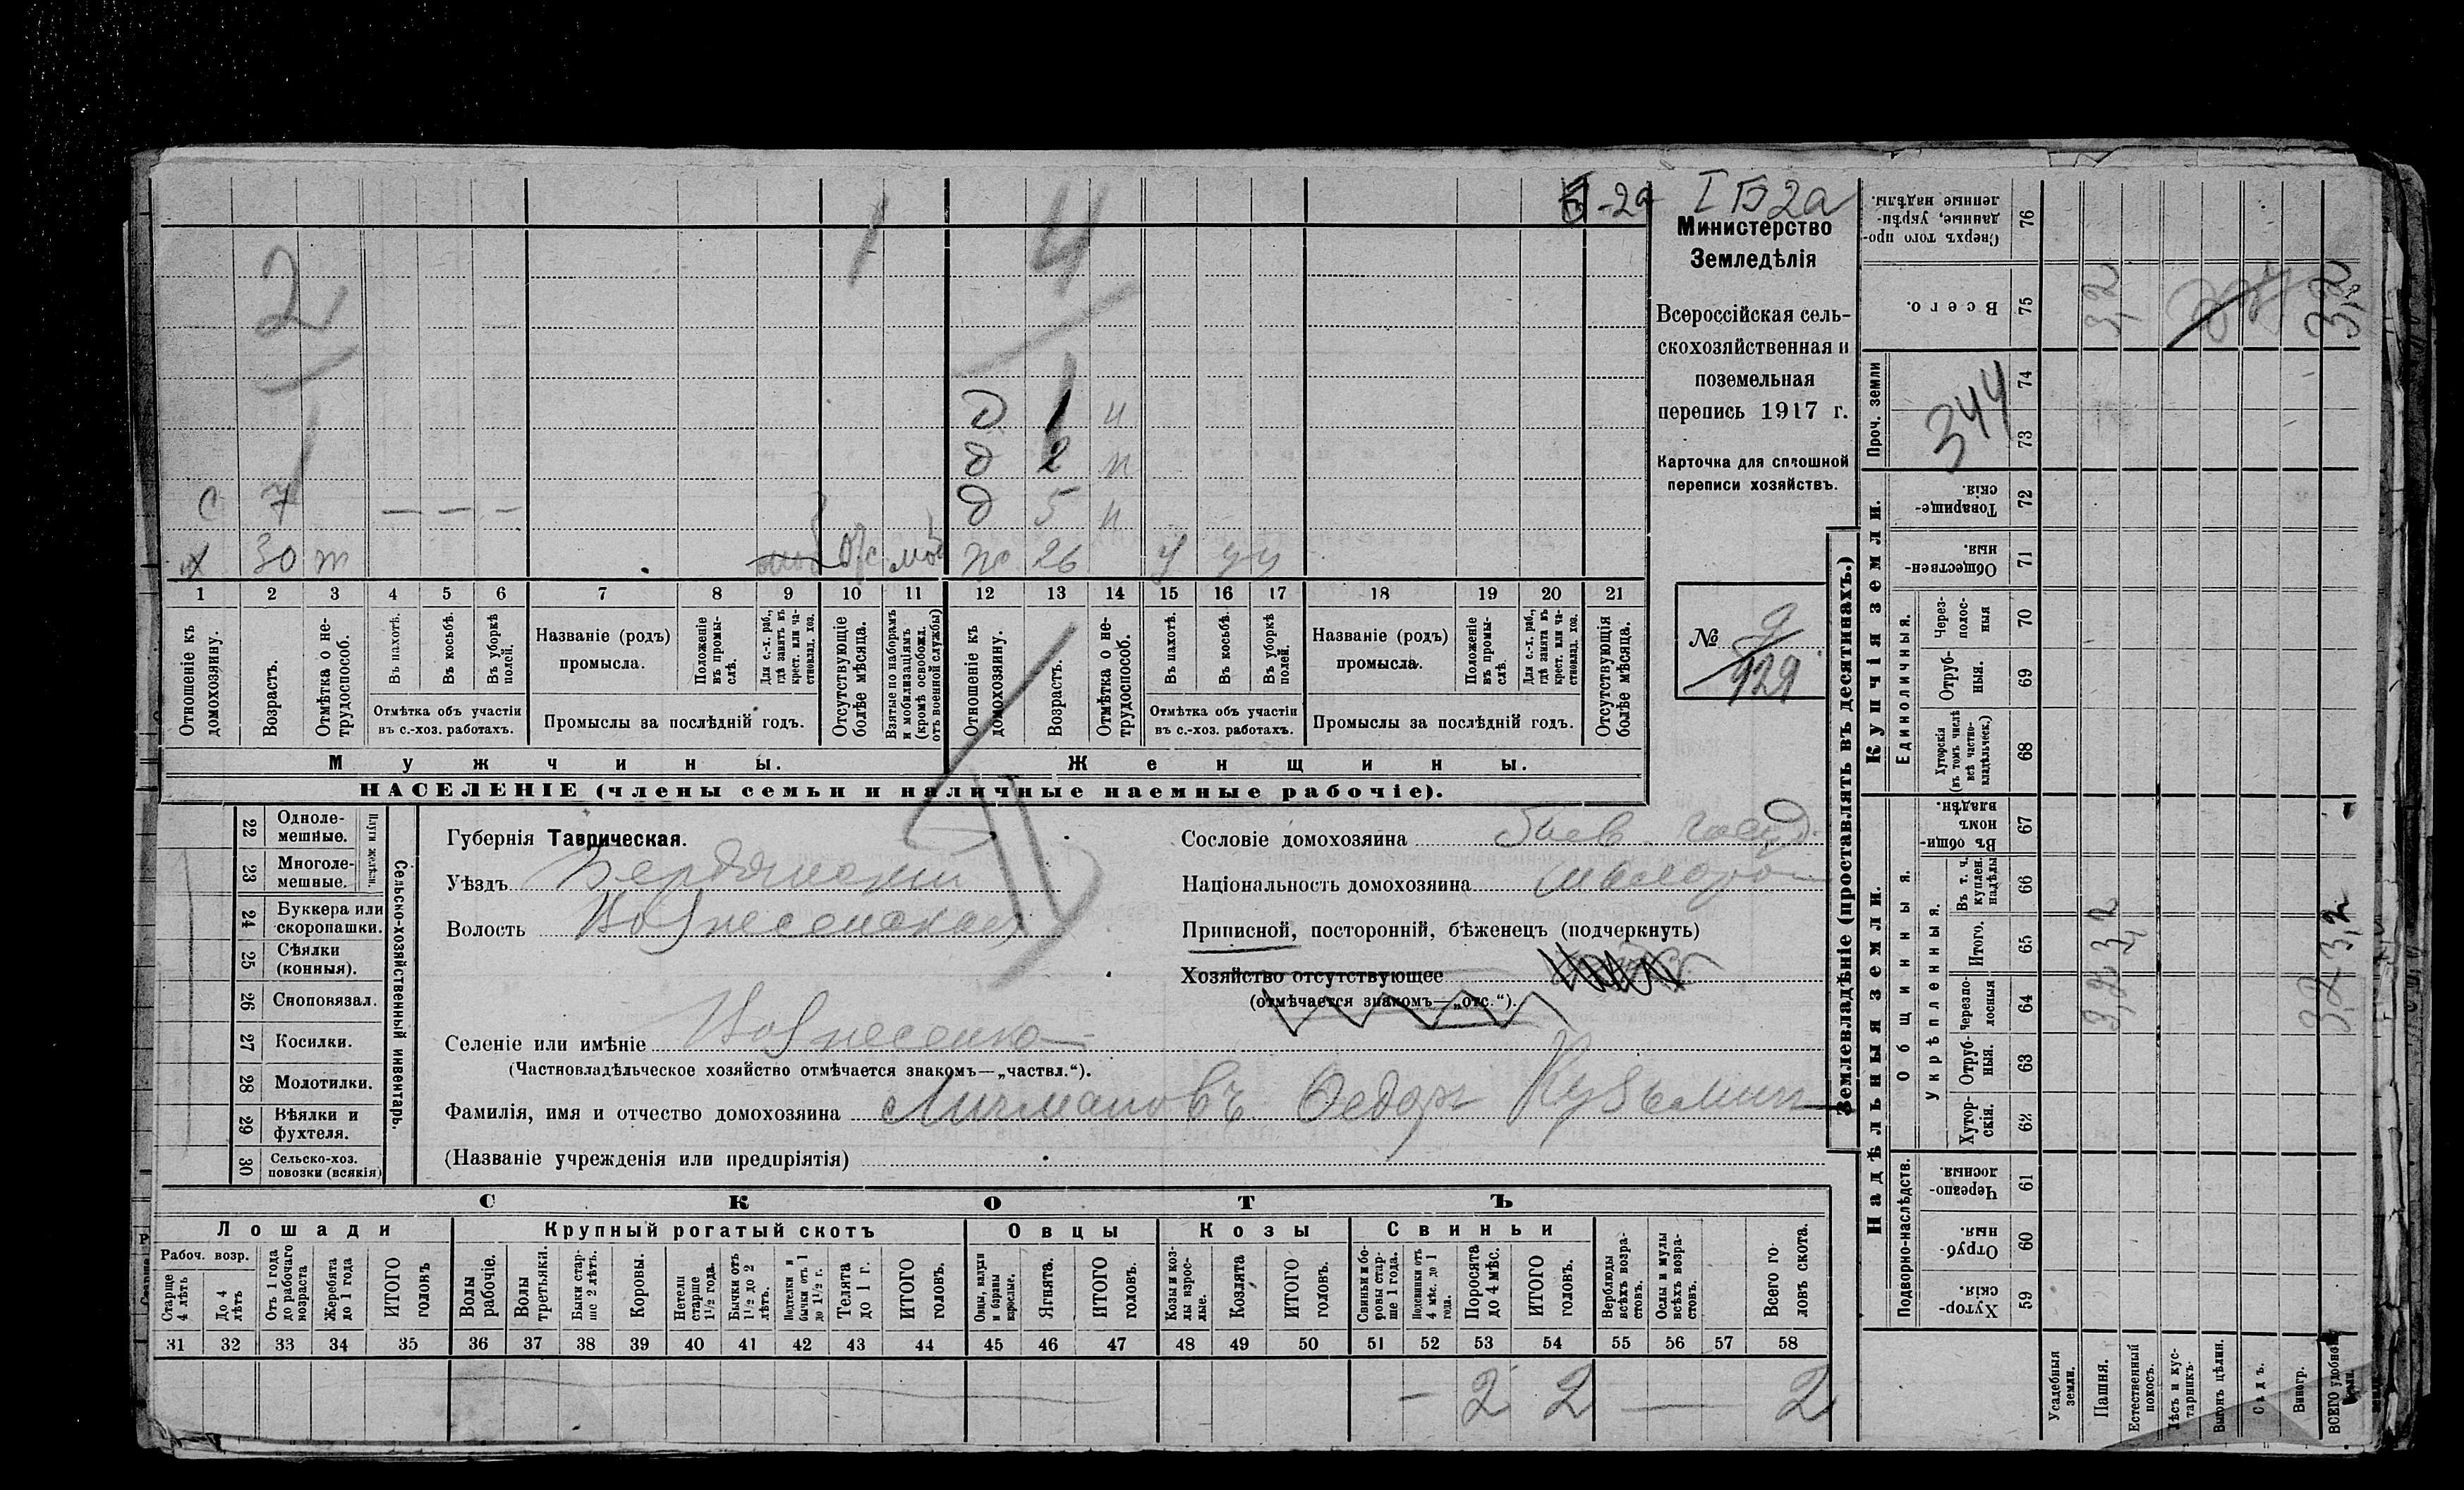 -2а
I Б 2а
Министерство
Земледѣлія
Всероссійская сель-
скохозяйственная и
поземельная
перепись 1917 г.
Карточка для сплошной
переписи хозяйствъ.
№ 9
929
2
1
4
д 1 н
д 2 н
с 7 — — — д 5 н
х 30 т отс моб ж 26 у у у
1 2 3 4 5 6 7 8 9 10 11 12 13 14 15 16 17 18 19 20 21
Отношеніе къ домохозяину.
Возрастъ.
Отмѣтка о не-трудоспособ.
Въ пахотѣ.
Въ косьбѣ.
Въ уборкѣ полей.
Отмѣтка объ участіи въ с.-хоз. работахъ.
Названіе (родъ) промысла.
Положеніе въ промы-слѣ.
Для с.-х. раб., гдѣ занятъ въ крест. или ча-стновлад. хоз.
Промыслы за послѣдній годъ.
Отсутствующіе болѣе мѣсяца.
Взятые по наборамъ и мобилизаціямъ (кромѣ освобожд. отъ военной службы)
Отношеніе къ домохозяину.
Возрастъ.
Отмѣтка о не-трудоспособ.
Въ пахотѣ.
Въ косьбѣ.
Въ уборкѣ полей.
Отмѣтка объ участіи въ с.-хоз. работахъ.
Названіе (родъ) промысла.
Положеніе въ промы-слѣ.
Для с.-х. раб., гдѣ занята въ крест. или ча-стновлад. хоз.
Промыслы за послѣдній годъ.
Отсутствующія болѣе мѣсяца.
Мужчины. Женщины.
НАСЕЛЕНІЕ (члены семьи и наличные наемные рабочіе).
Сельско-хозяйственный инвентарь.
Плуги желѣзн.
22 Одноле-мешные.
23 Многоле-мешные.
24 Буккера или скоропашки.
25 Сѣялки (конныя).
26 Сноповязал.
27 Косилки.
28 Молотилки.
29 Вѣялки и фухтеля.
30 Сельско-хоз. повозки (всякія)
Губернія Таврическая.
Уѣздъ Бердянскій
Волость Вознесенская
Сословіе домохозяина
Національность домохозяина малорос
Приписной, посторонній, бѣженецъ (подчеркнуть)
Хозяйство отсутствующее
(отмѣчается знакомъ—„отс.“).
Селеніе или имѣніе Вознесенка
(Частновладѣльческое хозяйство отмѣчается знакомъ—„частвл.“).
Фамилія, имя и отчество домохозяина Личмановъ Ѳедоръ Кузьмин
(Названіе учрежденія или предпріятія)
СКОТЪ
Лошади Крупный рогатый скотъ Овцы Козы Свиньи
Рабоч. возр.
Старше 4 лѣтъ
До 4 лѣтъ
Отъ 1 года до рабочаго возраста
Жеребята до 1 года
ИТОГО головъ
Волы рабочіе.
Волы третьяки.
Быки стар-ше 2 лѣтъ.
Коровы.
Нетели старше 1 1/2 года.
Бычки отъ 1 1/2 до 2 лѣтъ.
Подтелки и бычки отъ 1 до 1 1/2 г.
Телята до 1 г.
ИТОГО головъ.
Овцы, валухи и бараны взрослые.
Ягнята.
ИТОГО головъ.
Козы и коз-лы взрос-лые.
Козлята
ИТОГО головъ.
Свиньи и бо-ровы стар-ше 1 года.
Подсвинки отъ 4 мѣс. до 1 года.
Поросята до 4 мѣс.
ИТОГО головъ.
Верблюды всѣхъ возра-стовъ.
Ослы и мулы всѣхъ возра-стовъ.
Всего го-ловъ скота.
31 32 33 34 35 36 37 38 39 40 41 42 43 44 45 46 47 48 49 50 51 52 53 54 55 56 57 58
— 2 2 — 2
Землевладѣніе (проставлять въ десятинахъ.)
Купчія земли.
Надѣльныя земли.
Проч. земли
Единоличныя.
Общинныя.
Укрѣпленныя.
Подворно-наслѣдств.
Сверхъ того про-данные, укрѣп-ленные надѣлы. 76
Всего. 75 3,2 3,2
74
73
344
Товарище-скія. 72
Обществен-ныя. 71
Через-полос-ныя 70
Отруб-ныя. 69
Хуторскія (въ томъ числѣ всѣ частно-владѣльческ.) 68
Въ общин-номъ владѣн. 67
Въ т. ч. куплен. надѣлы 66
Итого. 65 3,2 3,2
Черезпо-лосныя 64
Отруб-ныя. 63
Хутор-скія. 62
Черезпо-лосныя. 61
Отруб-ныя. 60
Хутор-скія. 59
Усадебныя земли.
Пашня.
Естественный покосъ.
Лѣсъ и кус-тарникъ.
Выгонъ цѣлин.
Садъ.
Виногр.
ВСЕГО удобной земли.